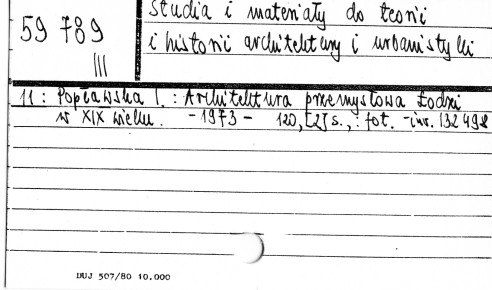 59 789
III
Studia i materiały do teorii
i historii architektury i urbanistyki
11 : Popławska I. : Architektura przemysłowa Łodzi
w XIX wieku. - 1973 - 120, [2] s., : fot. - inw. 132 498
DUJ 507/80 10.000